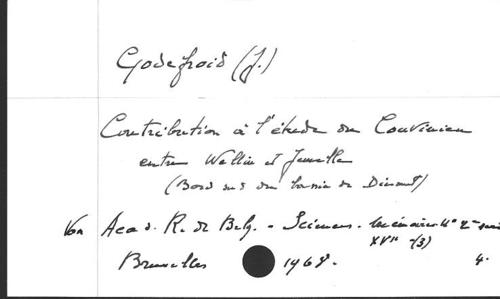 Godefroid (J.)
Contribution à l'étude du Couvinien
entre Wellin et Jemelle
(Bord sud du bassin de Dinant)
16A Acad. R. de Belg. - Sciences - Mémoires 4° 2me série
XVII -(3)
Bruxelles 1968. 4.